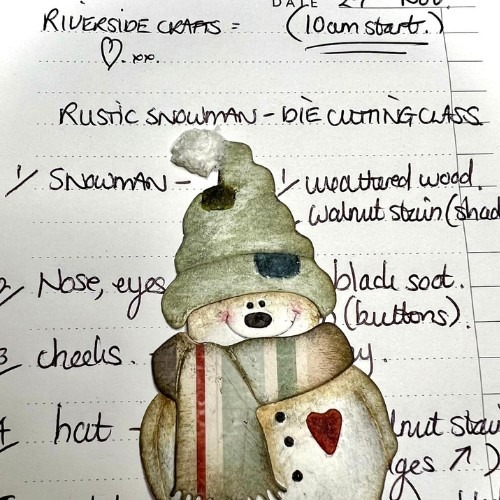 DATE 29 Nov.
RIVERSIDE CRAFTS = (10am start.)
♡.xx.
RUSTIC SNOWMAN - DIE CUTTING CLASS
1/ SNOWMAN - 1/ weathered wood.
walnut stain (shad
2/ Nose, eyes black soot.
(buttons).
3 cheeks.
4 hat - lnut stain
ges ↗)